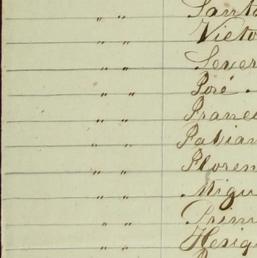 " " Santo
" " Victo
" " Sever
" " José
" " Franci
" " Fabian
" " Floren
" " Migu
" " Primi
" " Hesiq